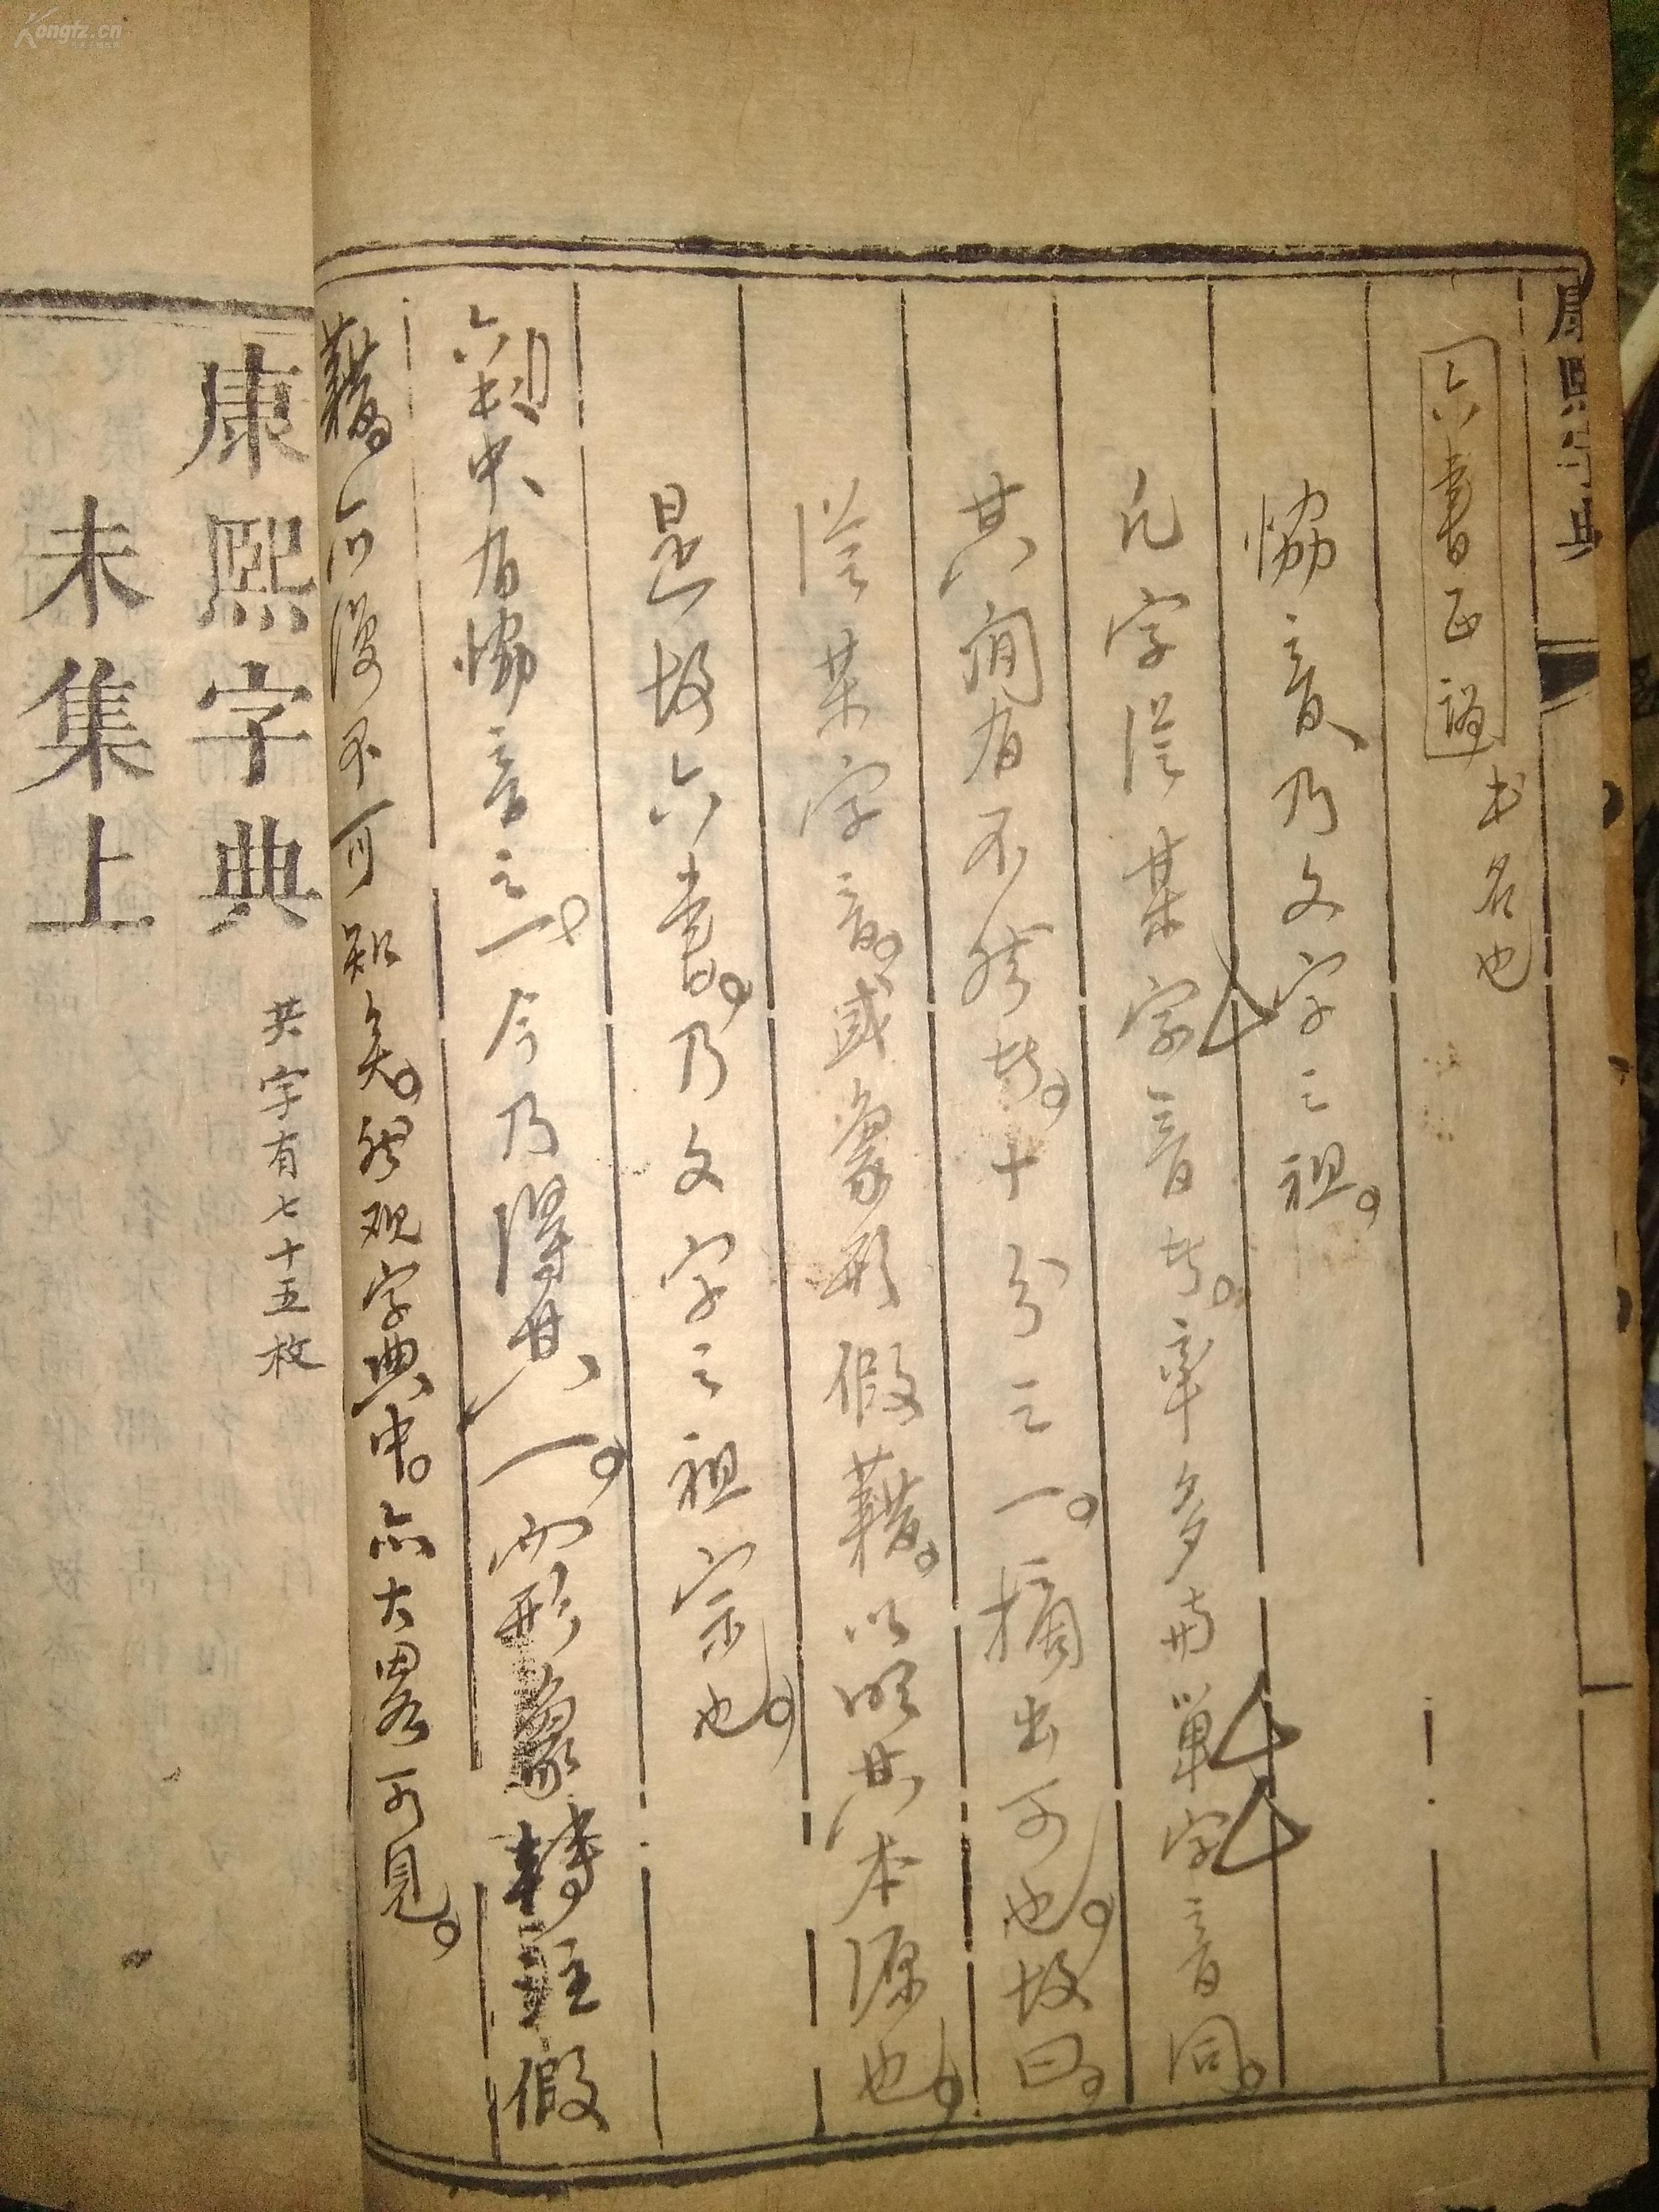 康熙字典
六書正譌
书名也
協音乃文字之祖。
凡字從某字音者。率多與單字音同。
其間有不然者。十分之一。摘出可也。故曰。
從某字音。或象形假藉。以明其本源也。
是故六書。乃文字之祖宗也。
六書中有協音之一。今乃得其一。而形象轉註假
藉。亦復不可知矣。然观字典中。亦大畧可見。
康熙字典
共字有七十五枚
未集上
Kongfz.cn